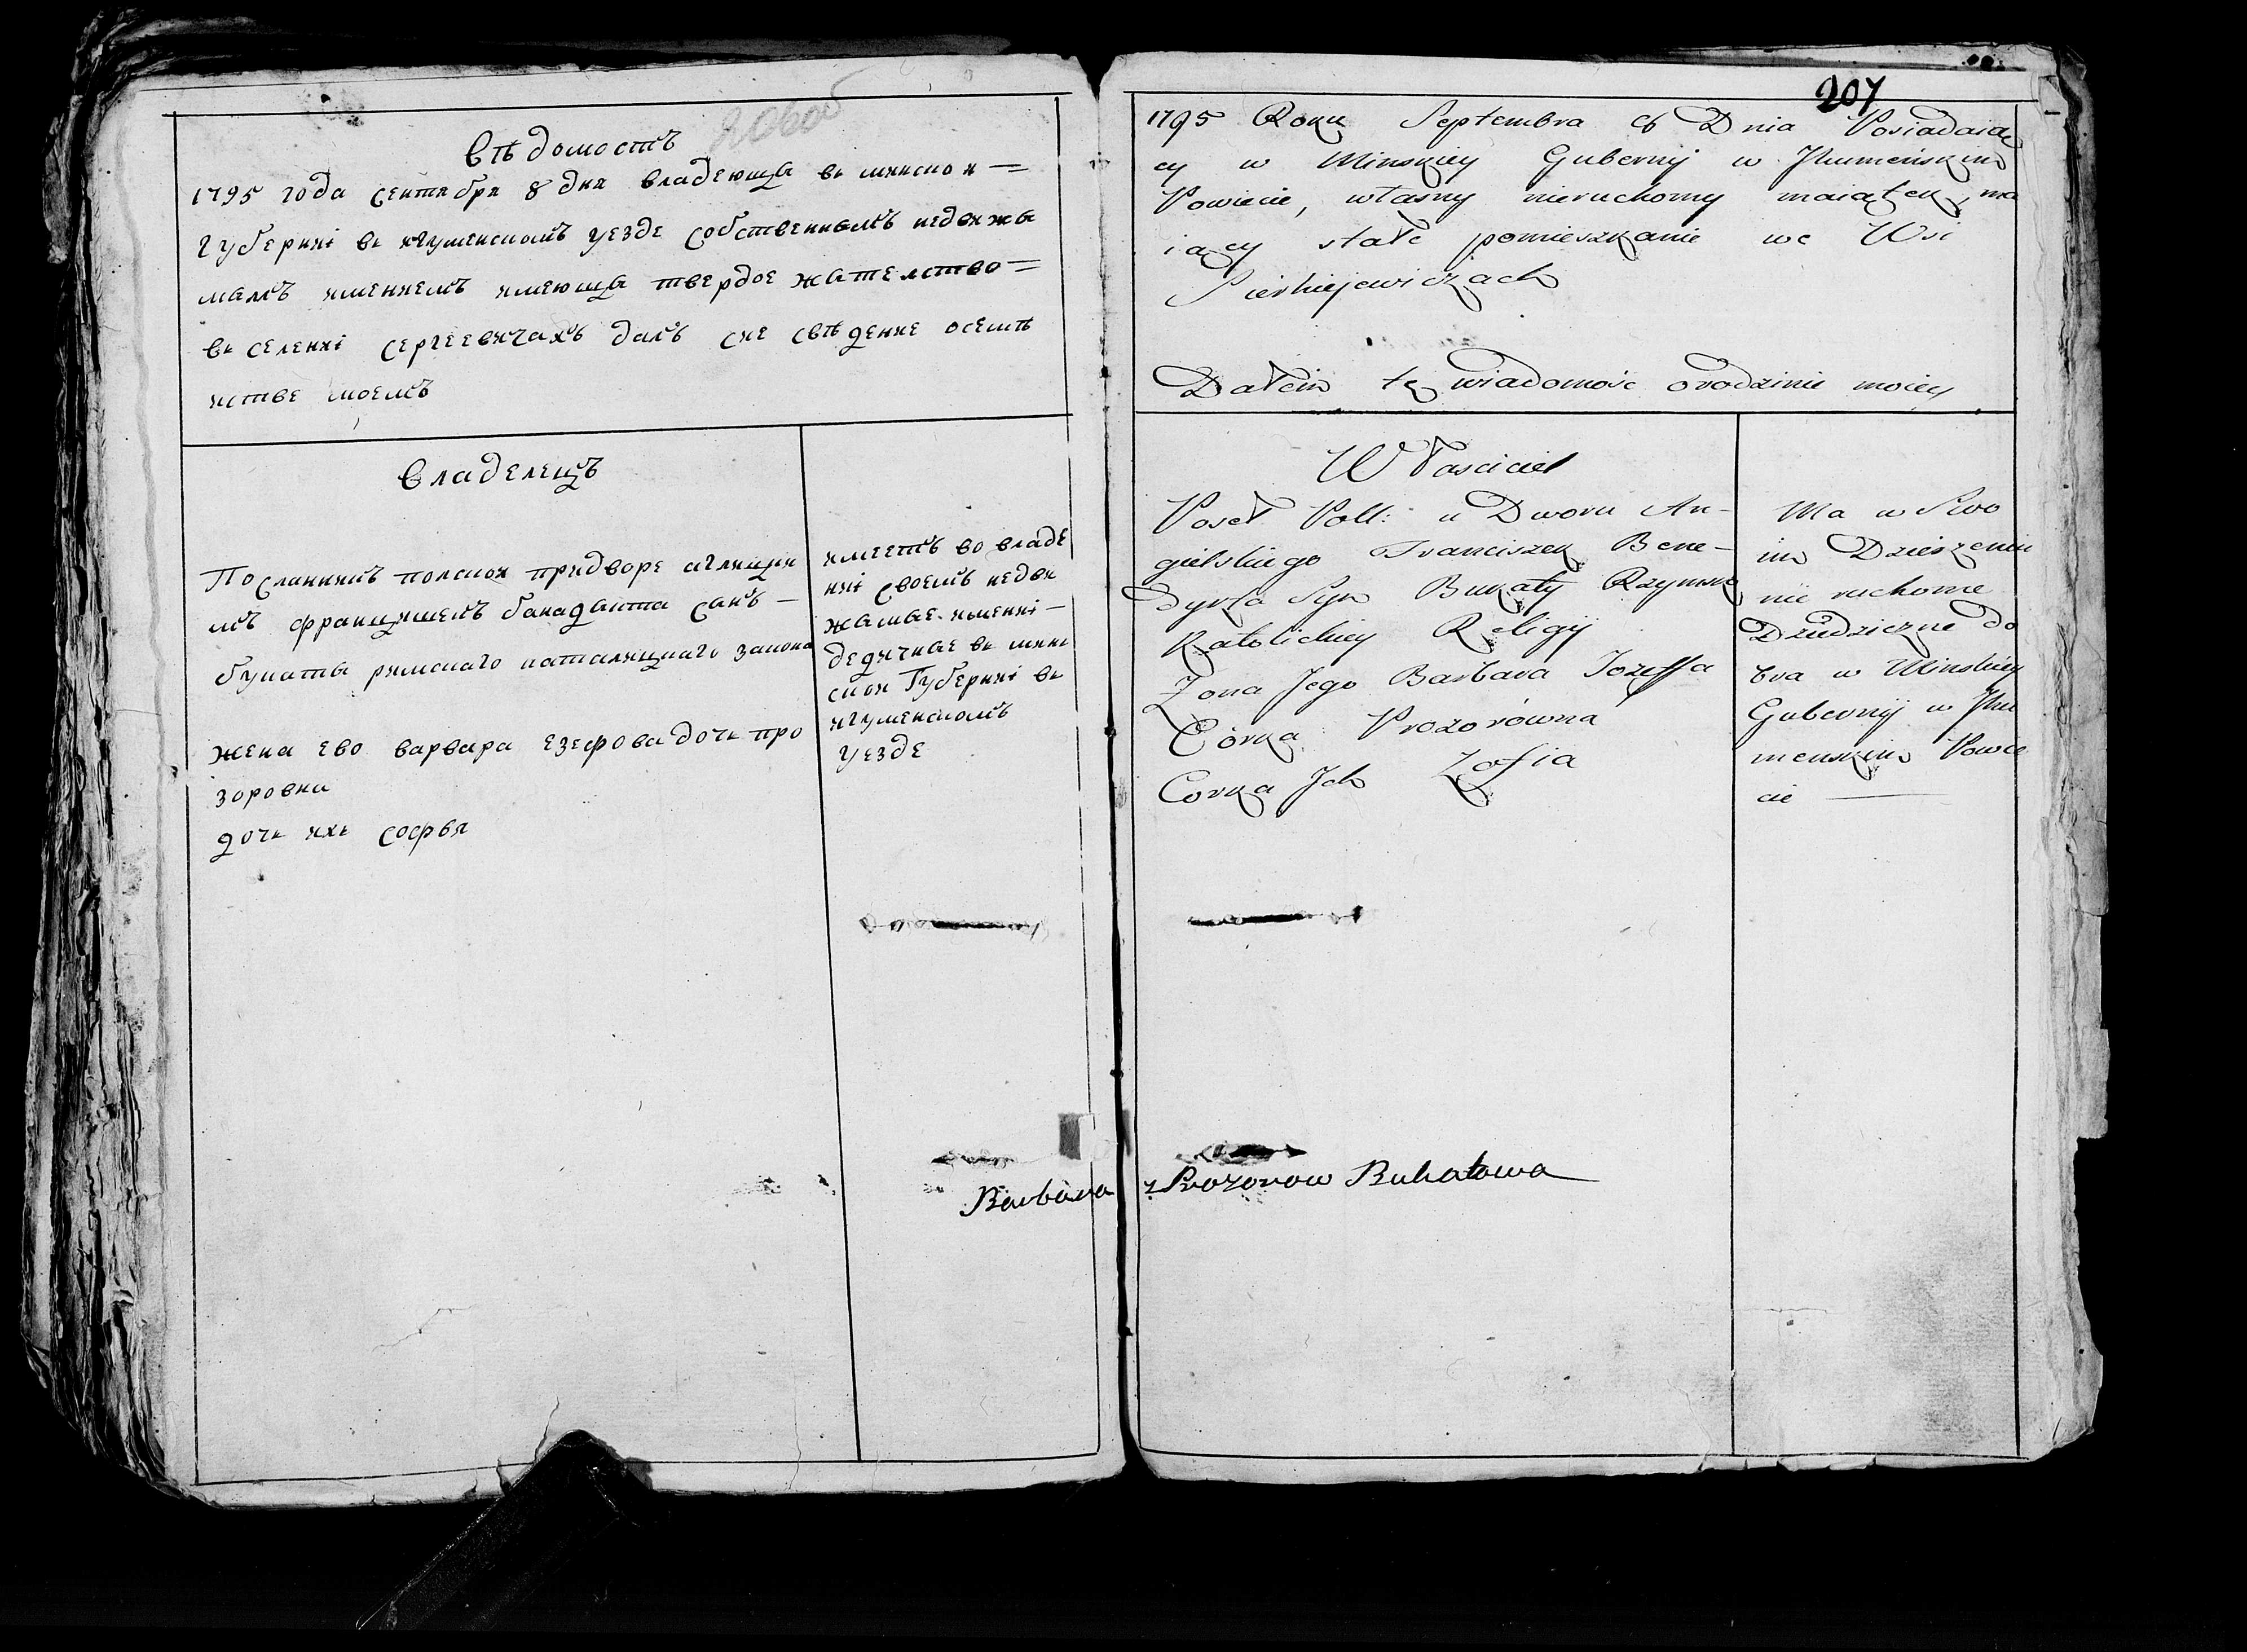 Вѣдомость
1795 года сентября 8 дня владеющы въ минской =
Губерниі въ игуменскомъ уезде собственнымъ недвижы
мымъ имениемъ имеющы твердое жителство =
въ селениі сергеевичахъ далъ сие свѣдение осемѣ
истве моемъ
Владелецъ
Посланникъ полской придворе аглицки
мъ францишекъ банадыкта сынъ –
букаты римскаго католицкаго закона
жена ево варвара езефова дочь про
зоровна
дочь ихъ софья
имеетъ во владе
ниі своемъ недви
жимые имениі –
дедичные въ минс
ской Губерниі въ
игуменскомъ
уезде
207
1795 Roku Septembra 8 Dnia Posiadaią
cy w Minskiey Gubernij w Jhumeńskim
Powiecie, własny nieruchomy maiątek, ma
iący stałe pomieszkanie we Wsi
Sierhiejewiczach
Dałem tę wiadomość orodzinie moiey
Własciciel
Poseł Poll: u Dworu An-
gielskiego Franciszek Bene-
dykta Syn Bukaty Rzymsko
Katolickiey Religij
Zona Jego Barbara Jozeffa
Córka Prozorówna
Corka Jch Zofia
Ma w Swo
im Dzierzeniu
nie ruchome
Dziedziczne do
bra w Minskiey
Gubernij w Jhu
menskim Powie
cie
Barbara z Prozorow Bukatowa